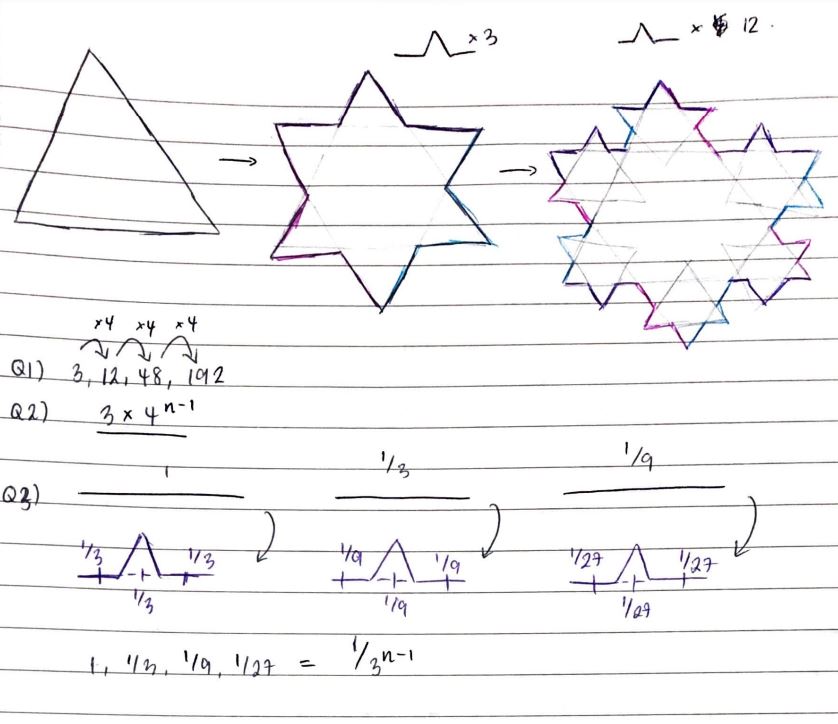 ×3
× 12.
×4 ×4 ×4
Q1) 3, 12, 48, 192
Q2) 3 × 4ⁿ⁻¹
1 1/3 1/9
Q3)
1/3 1/3 1/9 1/9 1/27 1/27
1/3 1/9 1/27
1, 1/3, 1/9, 1/27 = 1/3ⁿ⁻¹